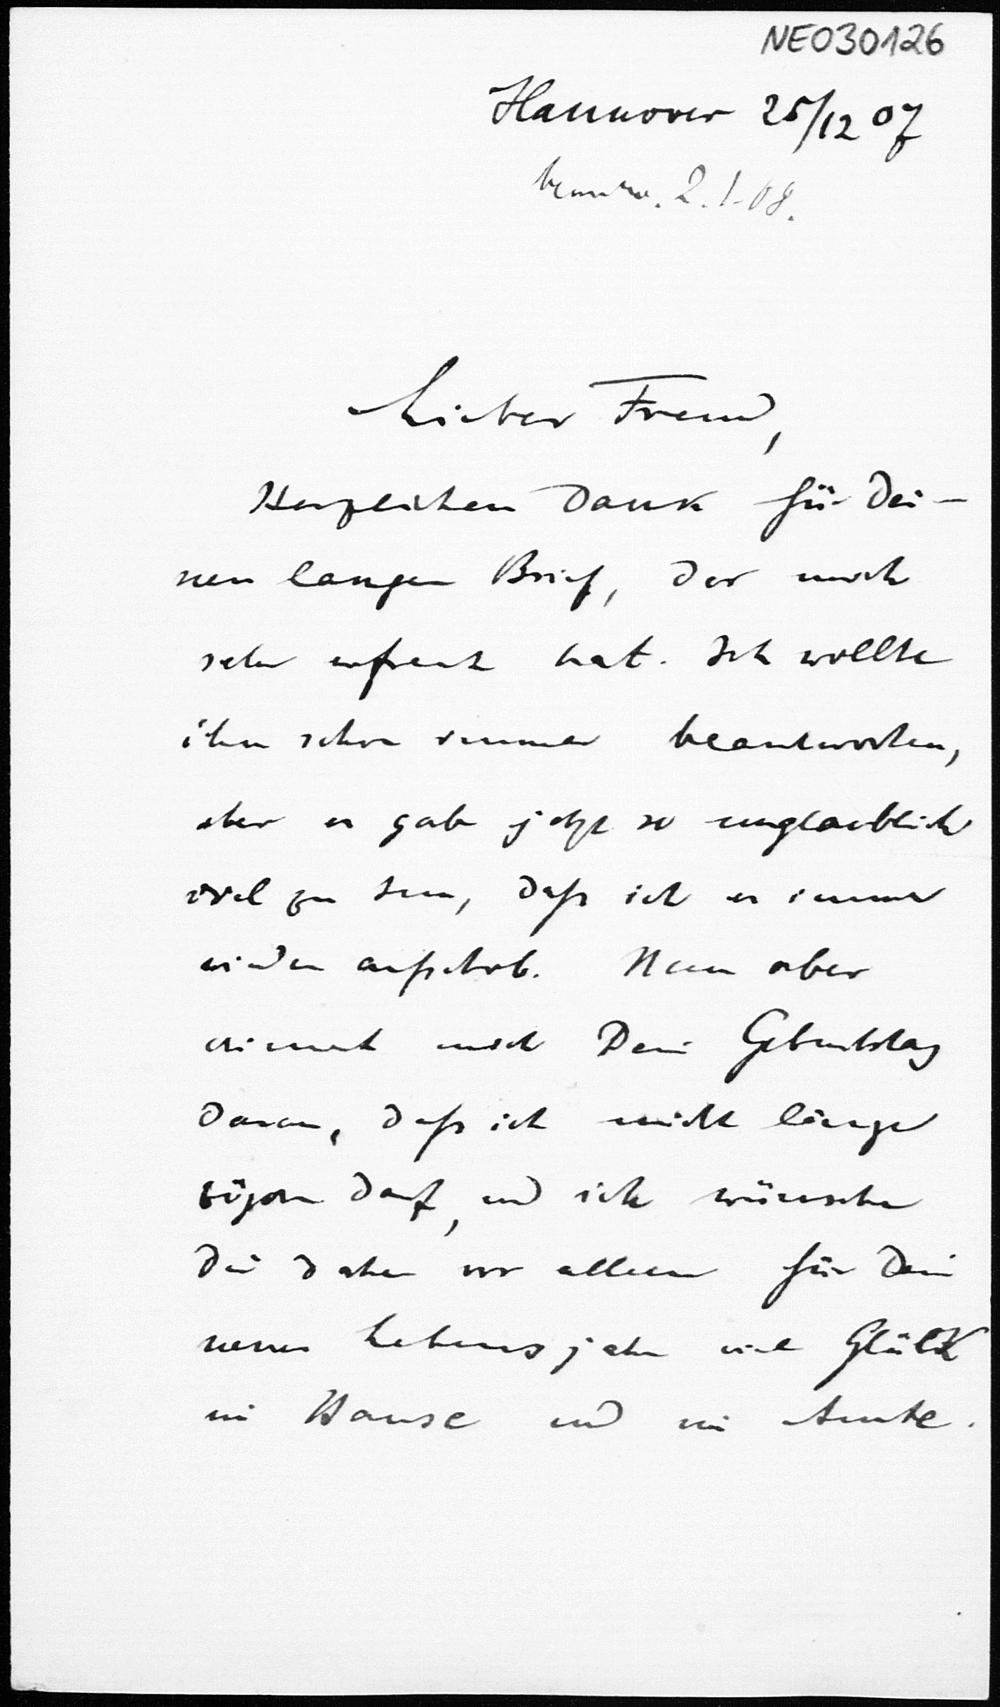 NE030126
Hannover 25/12 07
beantw. 2.1.08.
Lieber Freund,
Herzlichen Dank für Dei-
nen langen Brief, der mich
sehr erfreut hat. Ich wollte
ihn schon immer beantworten,
aber es gab jetzt so unglaublich
viel zu tun, daß ich es immer
wieder aufschob. Nun aber
erinnert mich Dein Geburtstag
daran, daß ich nicht länger
zögern darf, und ich wünsche
Dir daher vor allem für Dein
neues Lebensjahr viel Glück
im Hause und im Amte.